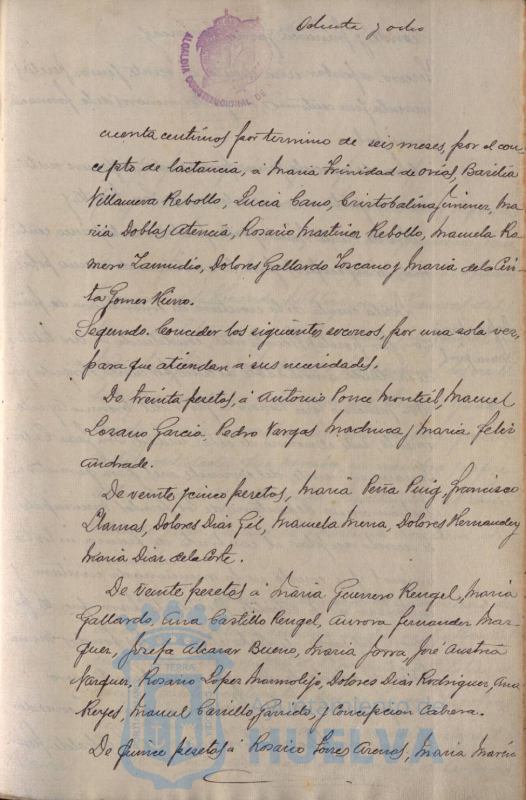 Ochenta y ocho
ALCALDÍA CONSTITUCIONAL DE
cuenta centimos por termino de seis meses, por el con-
cepto de lactancia, á Maria Trinidad de Orias, Basilia
Villanueva Rebollo, Lucia Cano, Cristobalina Jimenez, Ma-
ria Doblas Atencia, Rosario Martinez Rebollo, Manuela Ro-
mero Zamudio, Dolores Gallardo Toscano y Maria de la Cin-
ta Gomez
Segundo. Conceder los siguientes socorros, por una sola vez,
para que atiendan á sus necesidades.
De treinta pesetas, á Antonio Ponce Montiel, Manuel
Lozano Garcia, Pedro Vargas Madruca y Maria Feliz
Andrade.
De veinte y cinco pesetas, Maria Peña Puig, Francisco
Llamas, Dolores Diaz Gil, Manuela Mena, Dolores Hernandez y
Maria Diaz de la Corte.
De veinte pesetas á Maria Guerrero Rengel, Maria
Gallardo, Ana Castillo Rengel, Aurora Fernandez Mar-
quez, Josefa Alcazar Bueno, Maria Jorra, José Austria
Vazquez, Rosario Lopez Marmolejo, Dolores Diaz Rodriguez, Ana
Reyes, Manuel Carrillo Garrido, y Concepcion Cabrera.
De quince pesetas á Rosario Torres Arenas, Maria Marin
HUELVA